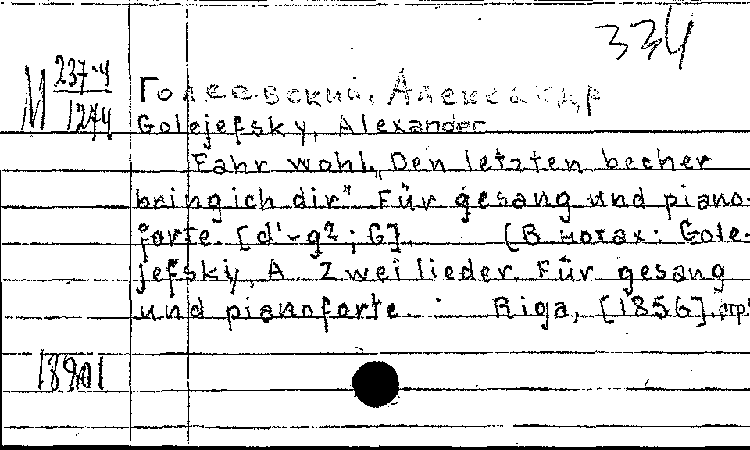 334
М 237-4
1274
Голеевский, Александр
Golejefsky, Alexander
Fahr wohl. „Den letzten becher
bring ich dir“. Für gesang und piano-
forte. [d'-g²; G]. (В нотах: Gole-
jefsky, A. Zwei lieder. Für gesang
und pianoforte. Riga, [1856],
18901